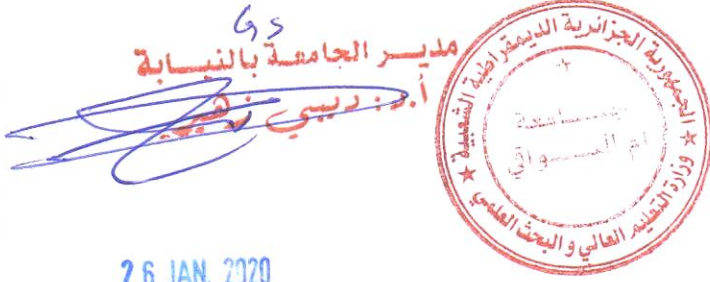 مدير الجامعة بالنيابة
أ.د: ديبي زهير
الجمهورية الجزائرية الديمقراطية الشعبية
وزارة التعليم العالي و البحث العلمي
جامعة
أم البواقي
26 JAN. 2020